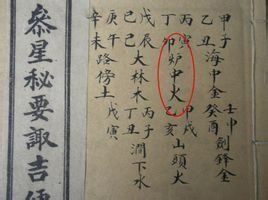 甲子
乙丑海中金
壬申
癸酉劍鋒金
丙寅
丁卯炉中火
甲戌
乙亥山頭火
戊辰
己巳大林木
丙子
丁丑澗下水
庚午
辛未路傍土
戊寅
叅星秘要諏吉便